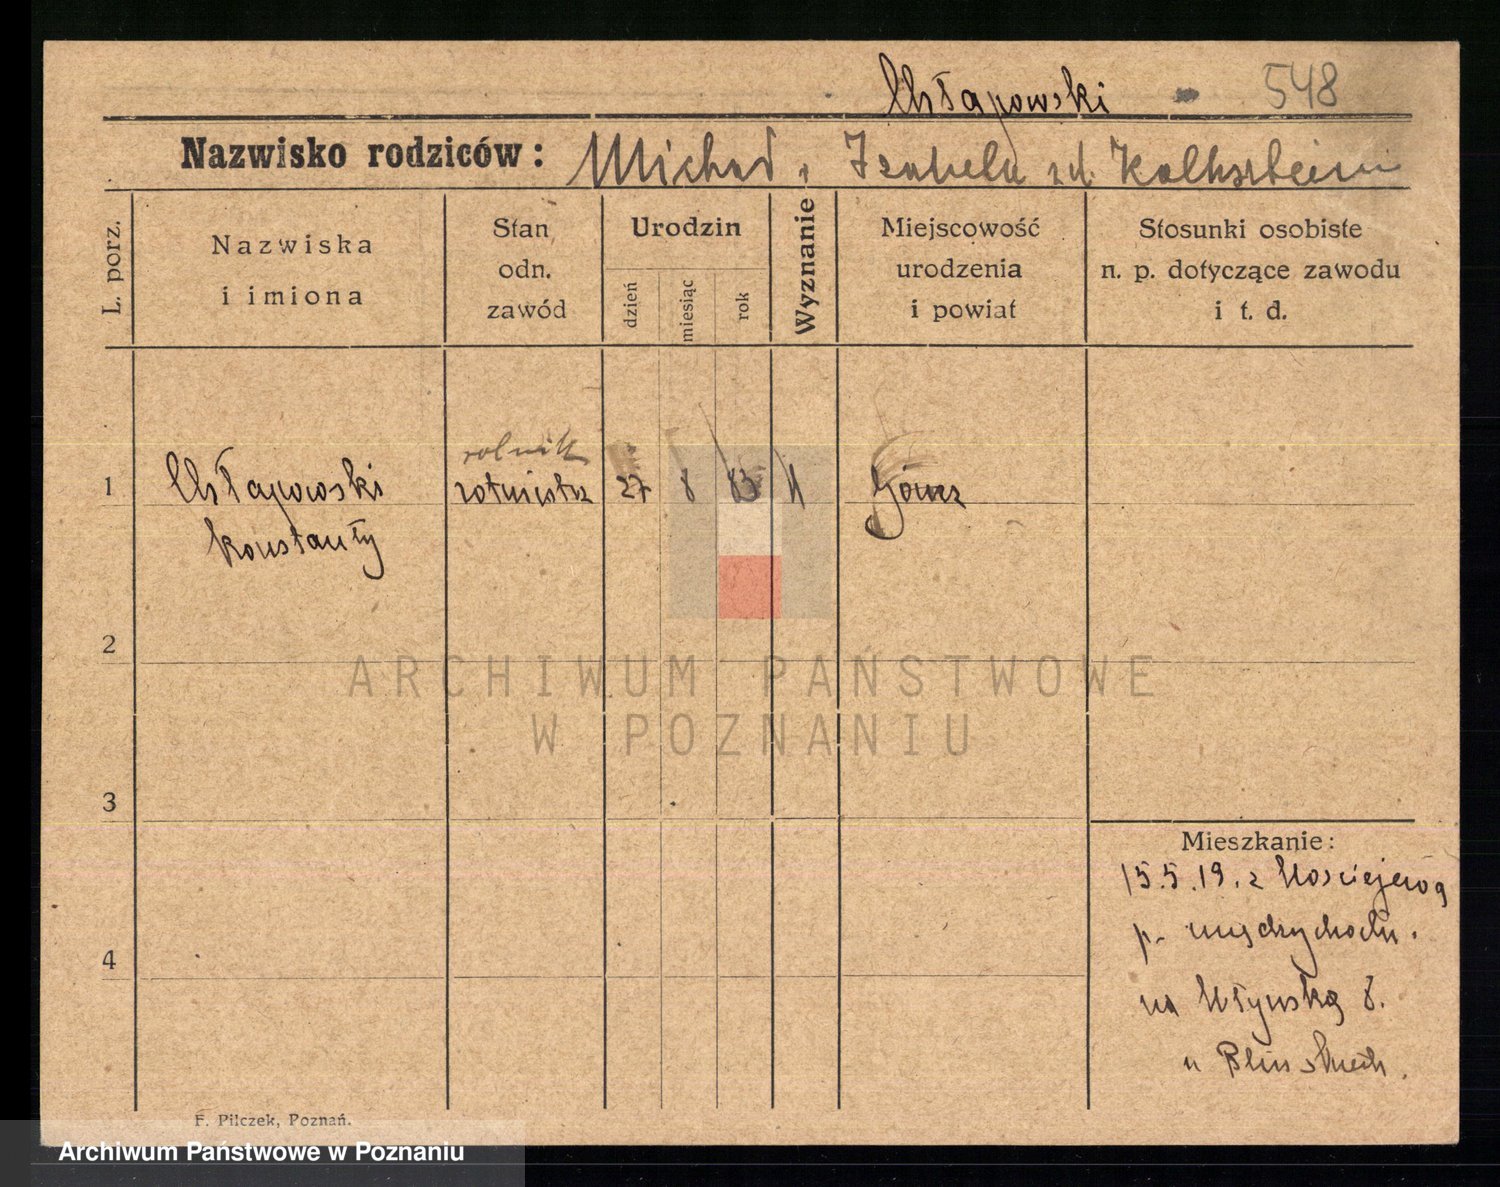 Chłapowski 548
Nazwisko rodziców: Michał i Izabela
L. porz.
Nazwiska
i imiona
Stan
odn.
zawód
Urodzin
dzień
miesiąc
rok
Wyznanie
Miejscowość
urodzenia
i powiat
Stosunki osobiste
n. p. dotyczące zawodu
i t. d.
rolnik
1 Chłapowski rotmistrz 27 8 83
Konstanty
2
ARCHIWUM PAŃSTWOWE
W POZNANIU
3
Mieszkanie:
15.5.19. z
4
na Młyńską 8.
u
F. Pilczek, Poznań.
Archiwum Państwowe w Poznaniu